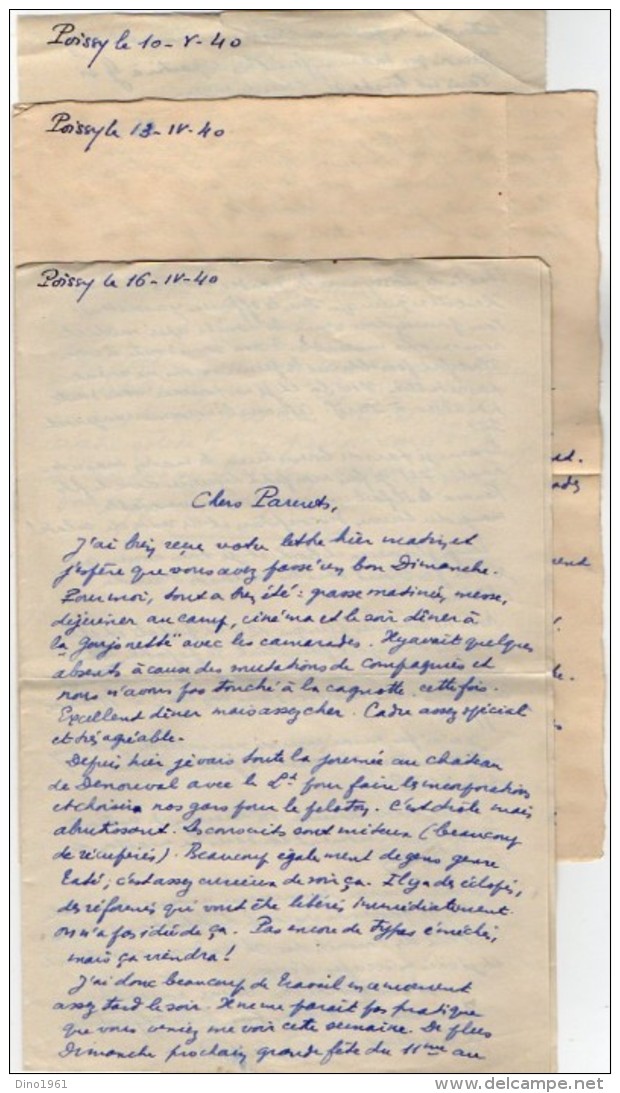 Poissy le 10-V-40
Poissy le 13-IV-40
Poissy le 16-IV-40
Chers Parents,
J'ai bien reçu votre lettre hier matin et
j'espère que vous avez passé un bon Dimanche.
Pour moi, tout a bien été : grasse matinée, messe,
déjeuner au camp, cinéma et le soir dîner à
la "Goujonette" avec les camarades. Il y avait quelques
absents à cause des mutations de compagnies et
nous n'avons pas touché à la cagnotte cette fois.
Excellent dîner mais assez cher. Cadre assez spécial
et très agréable.
Depuis hier je vais toute la journée au château
de Denouval avec le Lt pour faire les incorporations
et choisir nos gars pour le peloton. C'est drôle mais
abrutissant. Les conscrits sont miteux (beaucoup
de récupérés). Beaucoup également de gens genre
; c'est assez curieux de voir ça. Il y a des éclopés,
des réformés qui vont être libérés immédiatement
on n'a pas idée de ça. Pas encore de types éméchés,
mais ça viendra !
J'ai donc beaucoup de travail en ce moment
assez tard le soir. Il ne me paraît pas pratique
que vous veniez me voir cette semaine. De plus
Dimanche prochain grande fête du 11ème au
Dino1961
delcampe.net